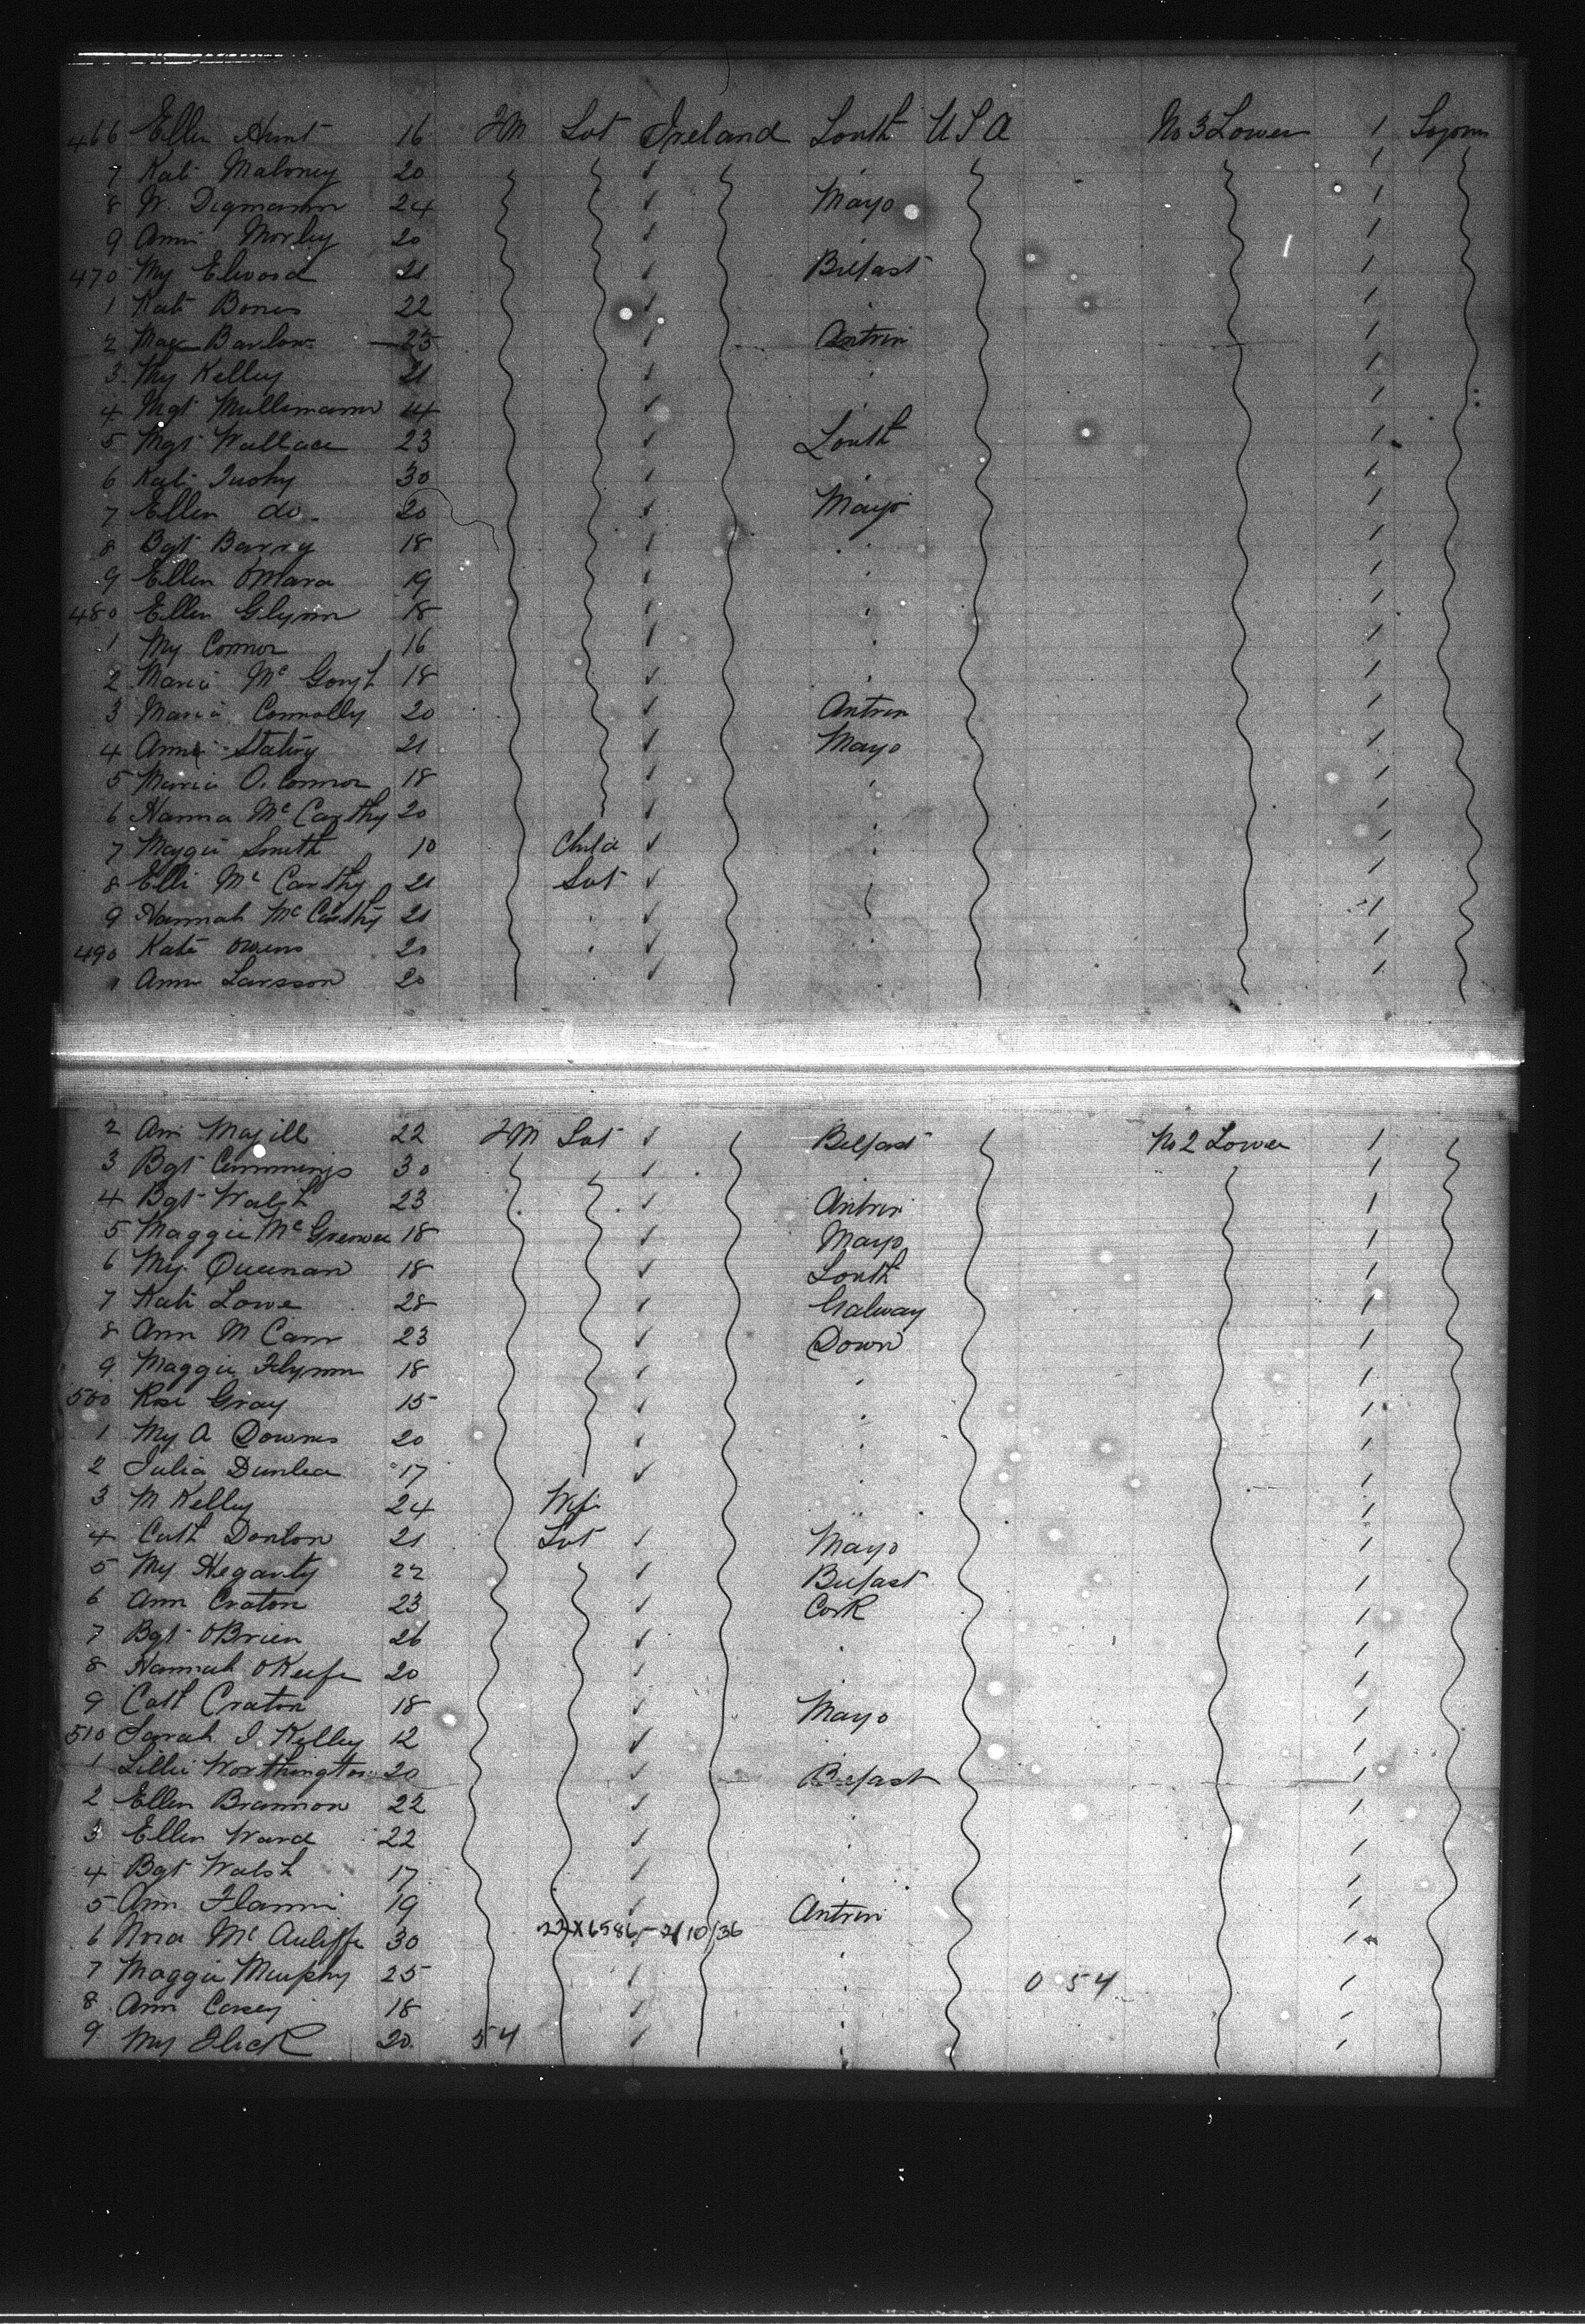 466 Ellen Hunt 16 Ireland Louth U S A No 3 Lower 1
7 Kate Maloney 20 1
8 W. 24 Mayo 1
9 Annie Morley 20 1
470 My Elwood 21 Belfast 1
1 Kate Bones 22 1
2 Barlow 25 Antrim 1
3 My Kelley 21 1
4 Mgt 14 1
5 Mgt Wallace 23 Louth 1
6 Kate Tuohy 30 1
7 Ellen do. 20 Mayo 1
8 Bgt Barry 18 1
9 Ellen OMara 19 1
480 Ellen Glynn 18 1
1 My Connor 16 1
2 Maria Mc 18 1
3 Maria Connolly 20 Antrim 1
4 Annie 21 Mayo 1
5 Maria O. Connor 18 1
6 Hanna McCarthy 20 1
7 Maggie Smith 10 Child 1
8 Ellie McCarthy 21 1
9 Hannah McCarthy 21 1
490 Kate Owens 20 1
1 Ann Larsson 20 1
2 Ann Magill 22 Belfast No 2 Lower 1
3 Bgt Cummings 30 1
4 Bgt Walsh 23 Antrim 1
5 Maggie 18 Mayo 1
6 My Queenan 18 Louth 1
7 Kate Lowe 28 Galway 1
8 Ann M Cann 23 Down 1
9 Maggie Flynn 18 1
500 Rose Gray 15 1
1 My A Downes 20 1
2 Julia Dunlea 17 1
3 M Kelley 24 Wife 1
4 Cath Donlon 21 Mayo 1
5 My Hegarty 22 Belfast 1
6 Ann Craton 23 Cork 1
7 Bgt OBrien 26 1
8 Hannah OKeefe 20 1
9 Cath Craton 18 Mayo 1
510 Sarah J. Kelley 12 1
1 Lillie Worthington 20 Belfast 1
2 Ellen Brannon 22 1
3 Ellen Ward 22 1
4 Bgt Walsh 17 1
5 Ann 19 Antrim 1
6 Nora McAuliffe 30 22X6586-2/10/36 1
7 Maggie Murphy 25 0 54 1
8 Ann Casey 18 1
9 My Flick 20 54 1